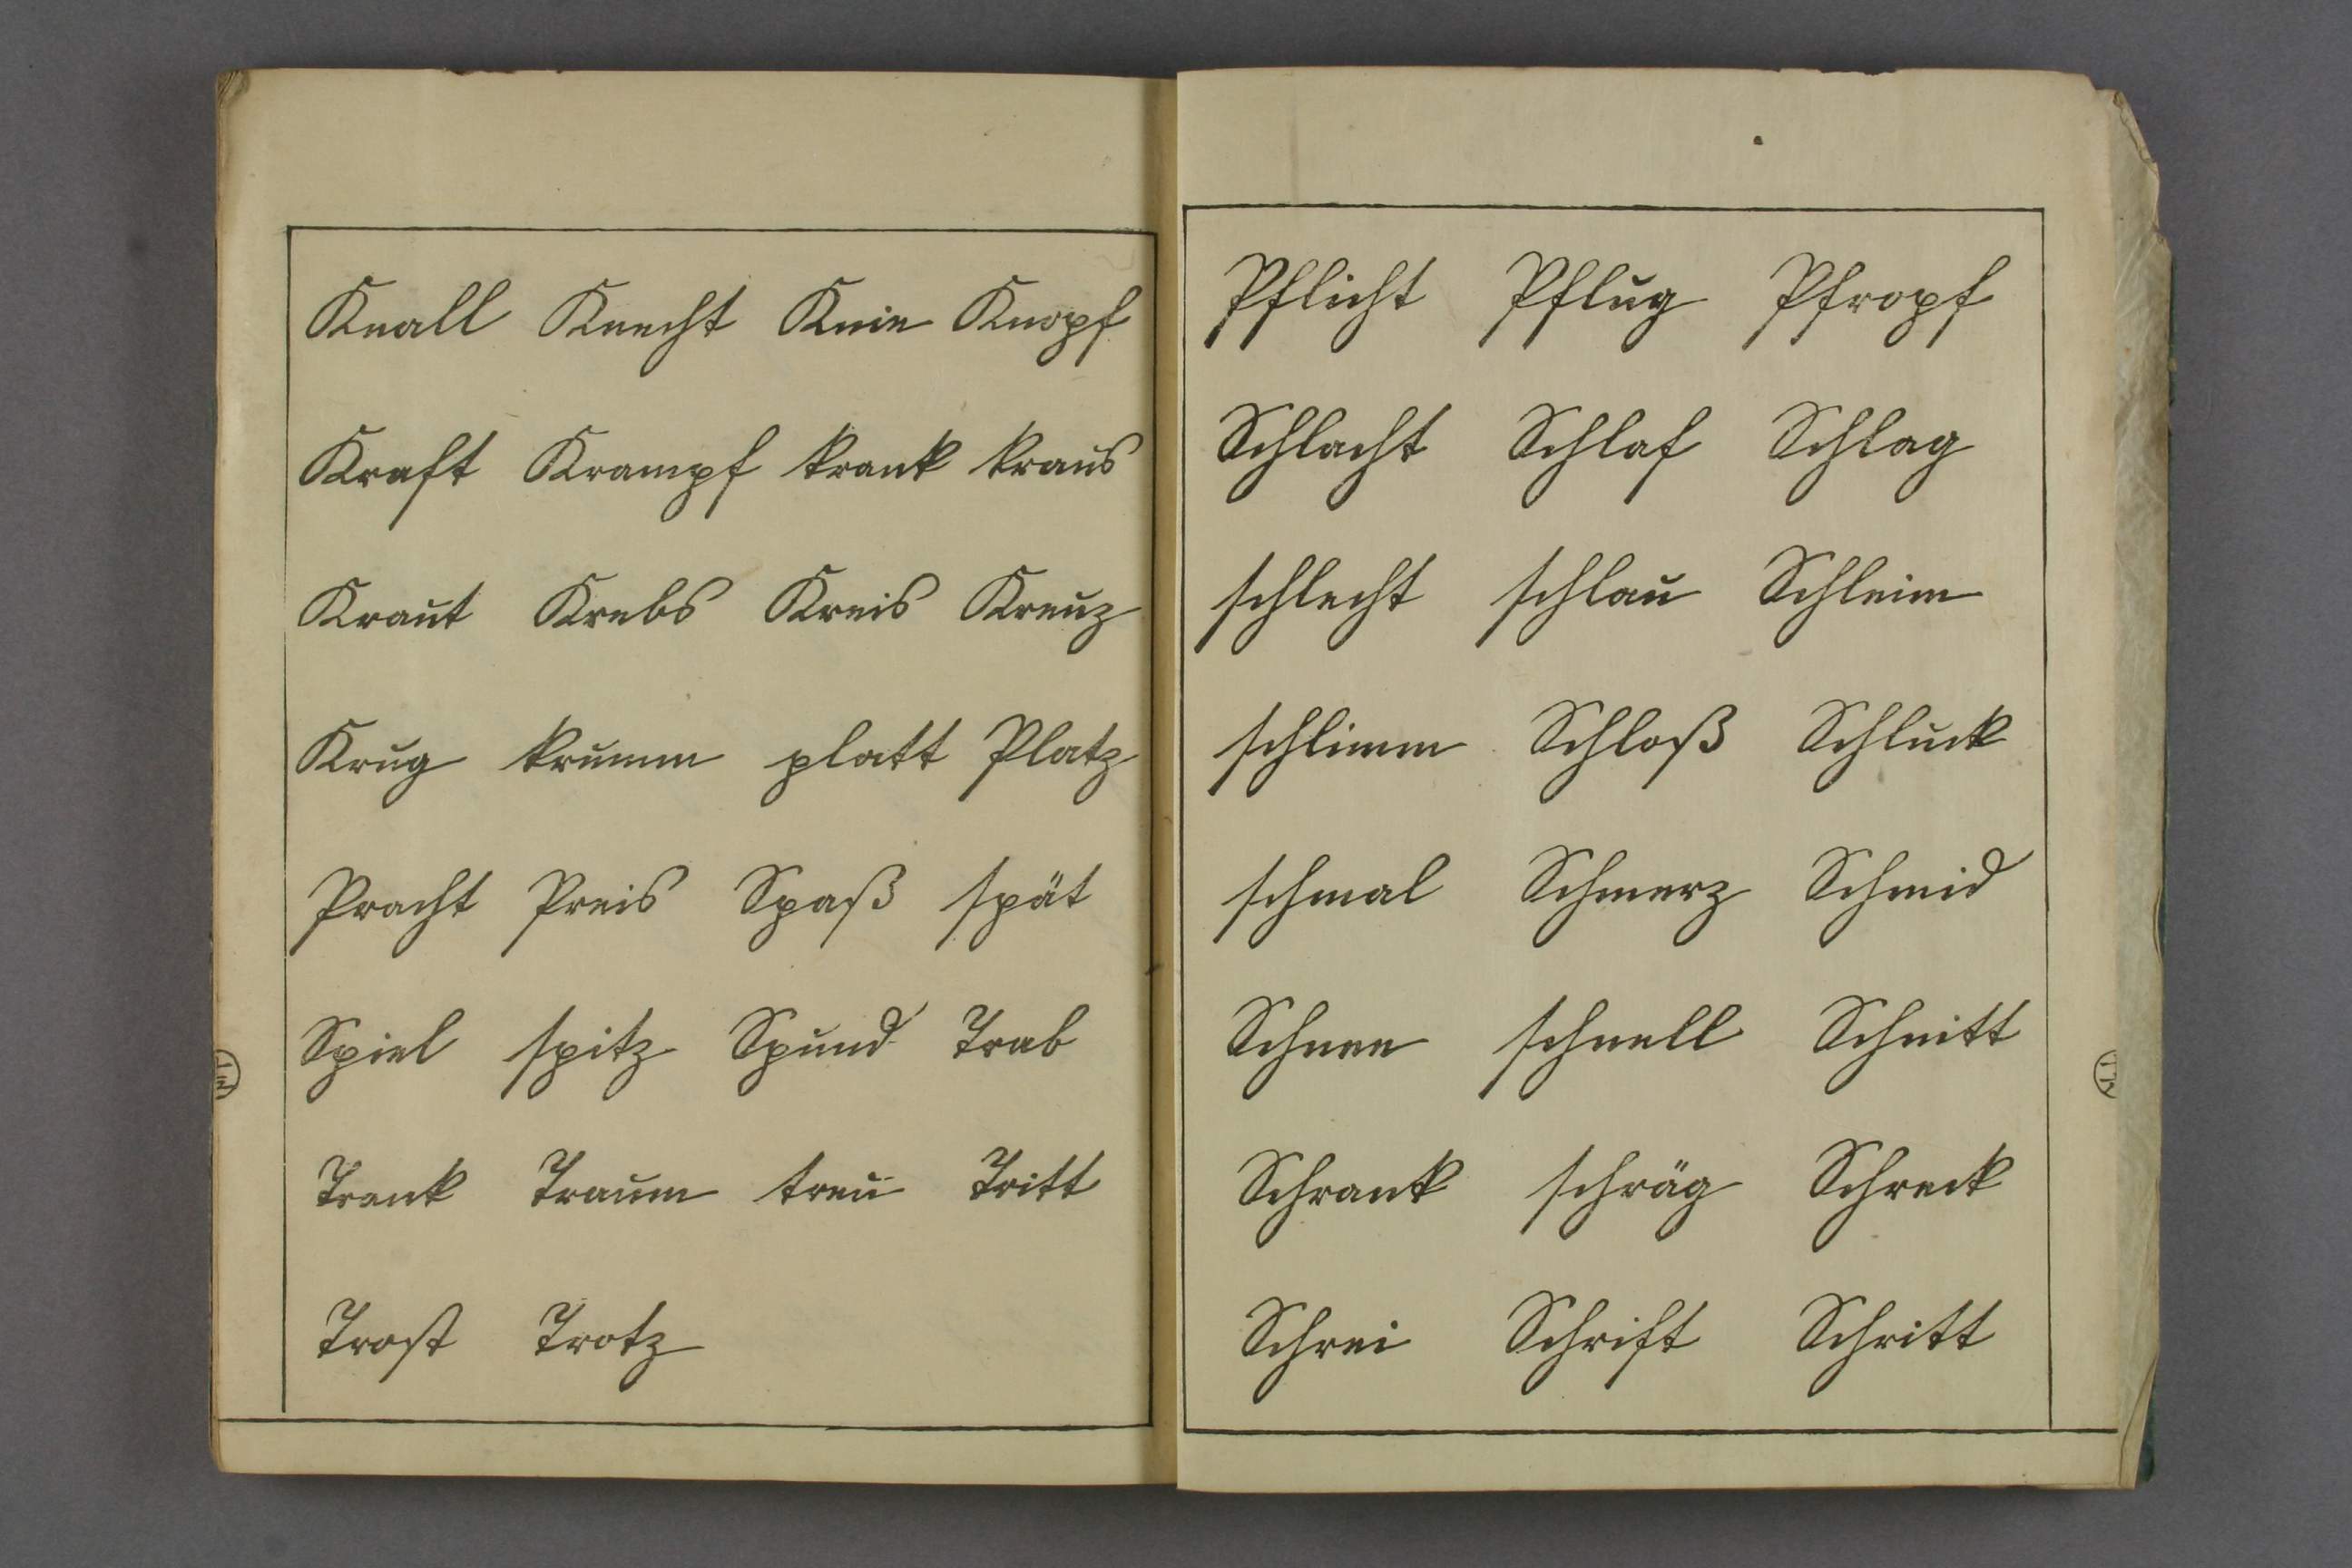 Knall Knecht Knie Knopf
Kraft Krampf krank kraus
Kraut Krebs Kreis Kreuz
Krug krumm platt Platz
Pracht Preis Spaß spät
Spiel spitz Spund Trab
Trank Traum treu Tritt
Trost Trotz
Pflicht Pflug Pfropf
Schlacht Schlaf Schlag
schlecht schlau Schleim
schlimm Schloß Schluck
schmal Schmerz Schmid
Schnee schnell Schnitt
Schrank schräg Schreck
Schrei Schrift Schritt